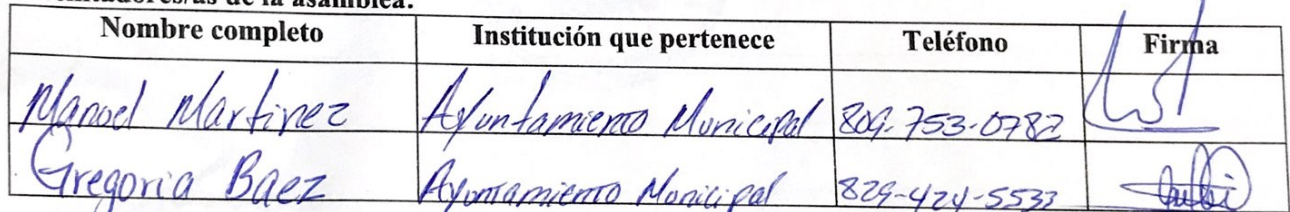 de la asamblea:
Nombre completo Institución que pertenece Teléfono Firma
Manoel Martinez Ayuntamiento Municipal 809-753-0782
Gregoria Baez Ayuntamiento Municipal 829-424-5533